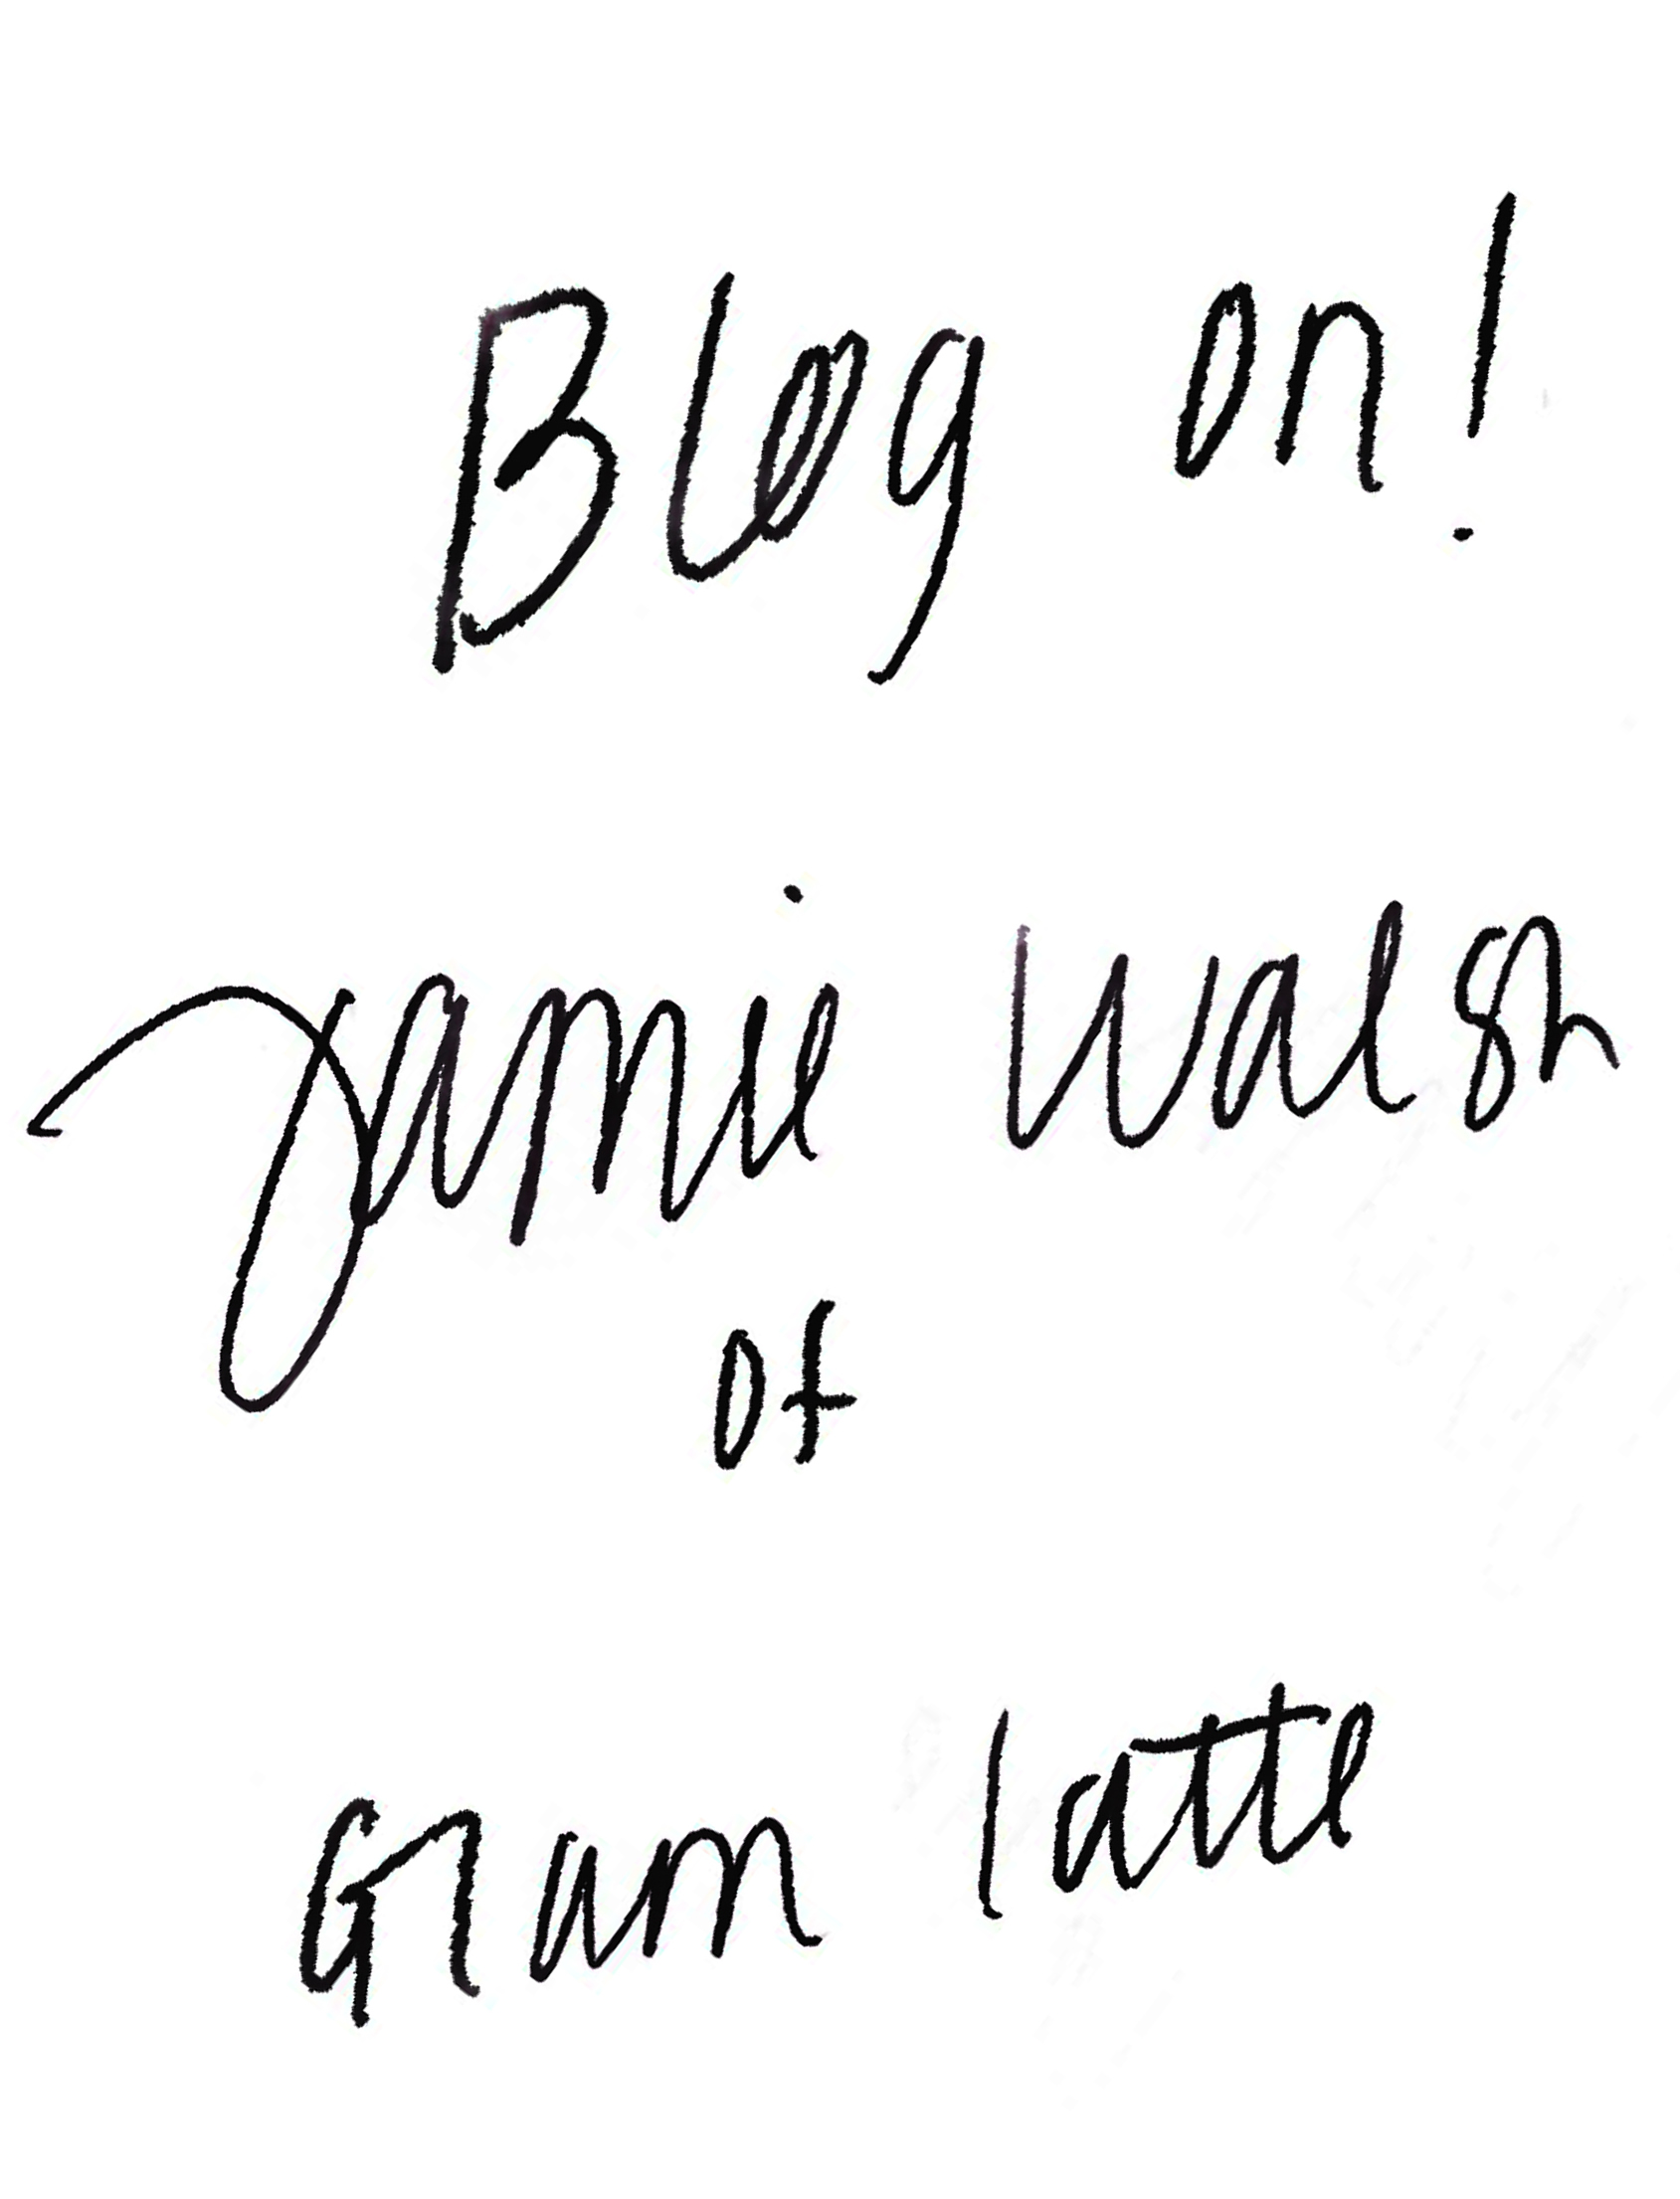 Blog on!
Jamie Walsh
of
Glam latte